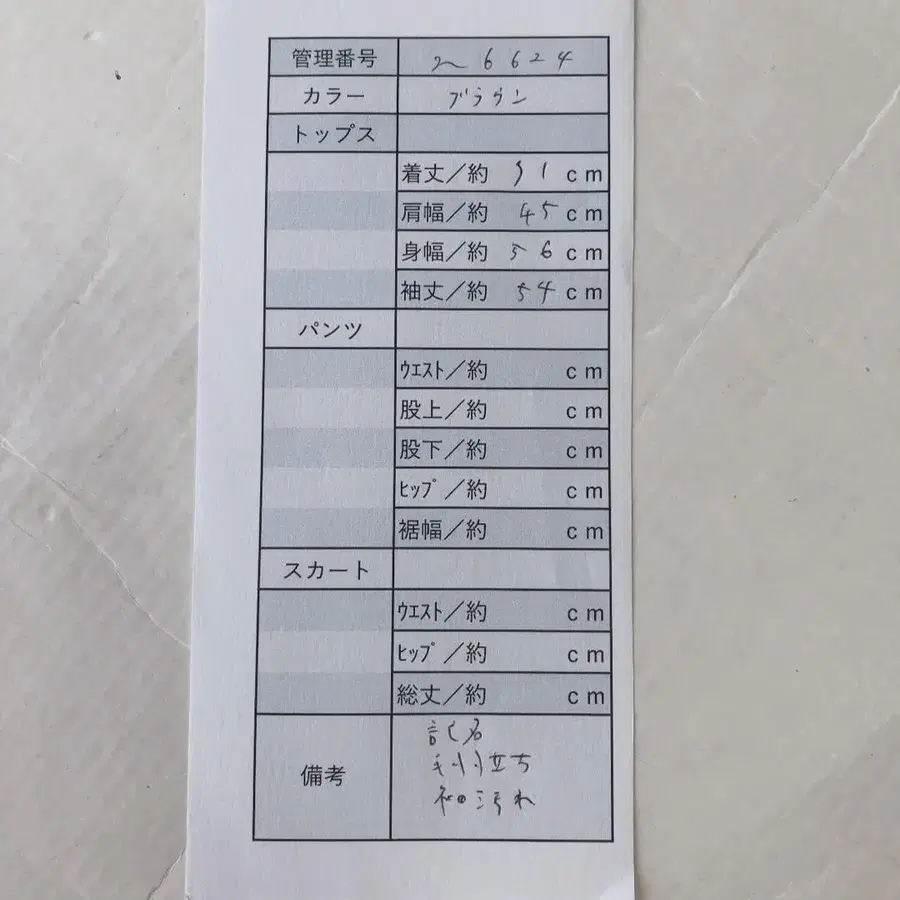 管理番号 26624
カラー ブラウン
トップス
着丈／約 91 cm
肩幅／約 45 cm
身幅／約 56 cm
袖丈／約 54 cm
パンツ
ウエスト／約 cm
股上／約 cm
股下／約 cm
ヒップ／約 cm
裾幅／約 cm
スカート
ウエスト／約 cm
ヒップ／約 cm
総丈／約 cm
備考
記名
毛羽立ち
袖汚れ